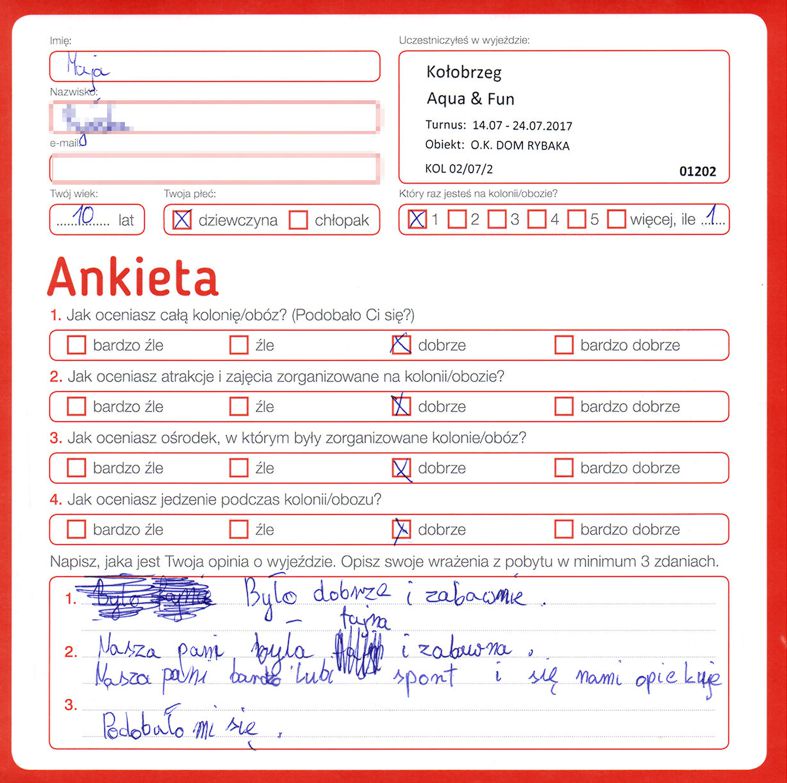 Imię:
Maja
Nazwisko:
e-mail:
Twój wiek:
10 lat
Twoja płeć:
dziewczyna chłopak
Uczestniczyłeś w wyjeździe:
Kołobrzeg
Aqua & Fun
Turnus: 14.07 - 24.07.2017
Obiekt: O.K. DOM RYBAKA
KOL 02/07/2 01202
Który raz jesteś na kolonii/obozie?
1 2 3 4 5 więcej, ile 1
Ankieta
1. Jak oceniasz całą kolonię/obóz? (Podobało Ci się?)
bardzo źle źle dobrze bardzo dobrze
2. Jak oceniasz atrakcje i zajęcia zorganizowane na kolonii/obozie?
bardzo źle źle dobrze bardzo dobrze
3. Jak oceniasz ośrodek, w którym były zorganizowane kolonie/obóz?
bardzo źle źle dobrze bardzo dobrze
4. Jak oceniasz jedzenie podczas kolonii/obozu?
bardzo źle źle dobrze bardzo dobrze
Napisz, jaka jest Twoja opinia o wyjeździe. Opisz swoje wrażenia z pobytu w minimum 3 zdaniach.
1. Było dobrze i zabawnie.
2. Nasza pani była fajna i zabawna.
Nasza pani bardo lubi sport i się nami opiekuje
3. Podobało mi się.